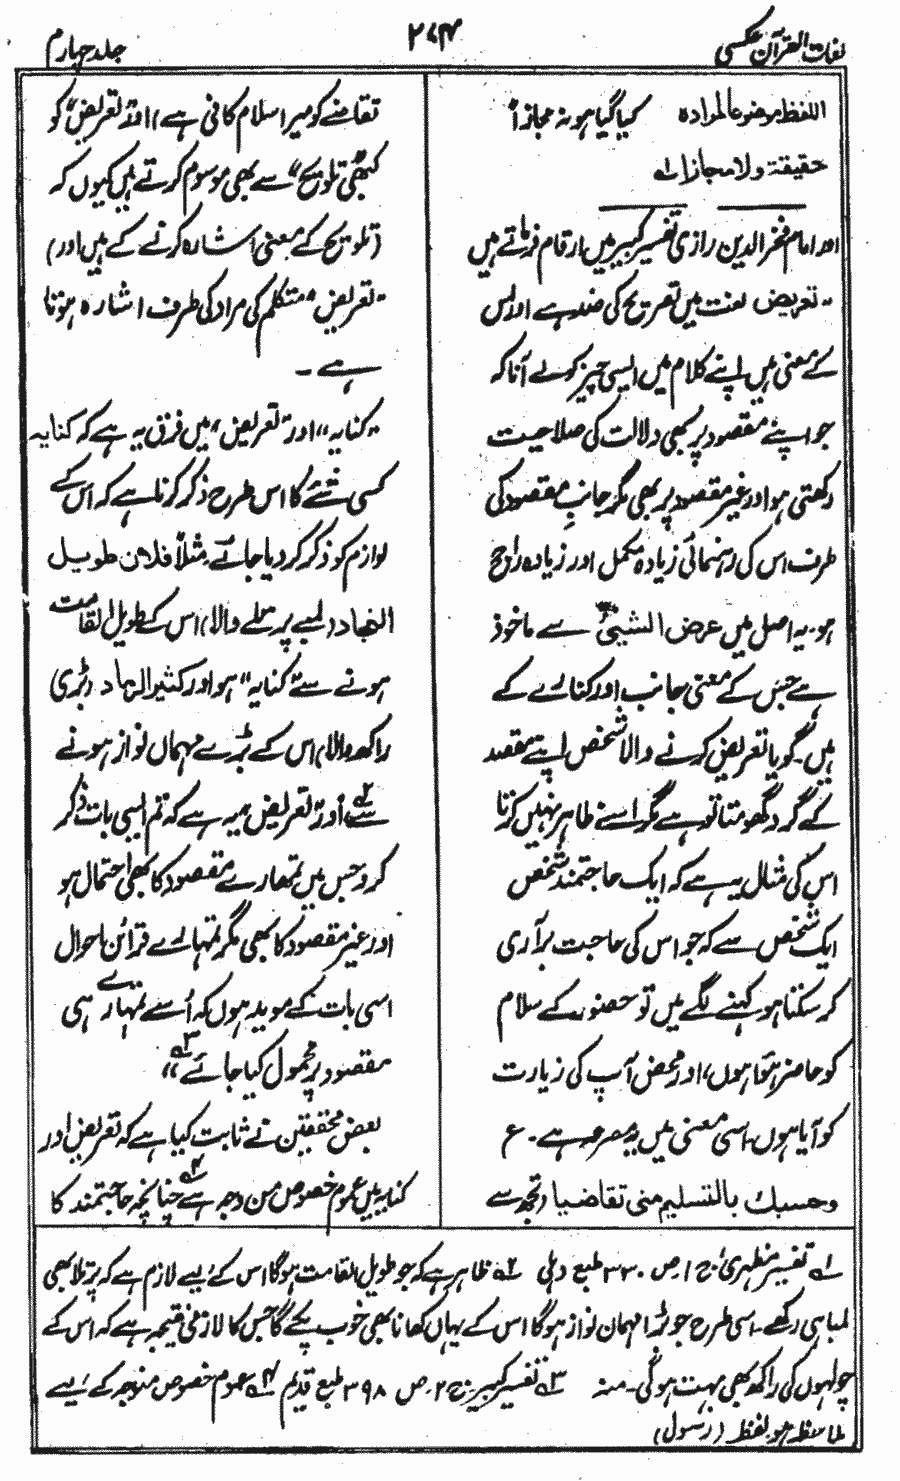 لغات القرآن عکسی
۲۷۴
جلد چہارم
اللفظ موضوعا لمرادہ کیا گیا ہو نہ مجازاً
حقیقۃ ولا مجازا لہ
اور امام فخر الدین رازی تفسیر کبیر میں ارقام فرماتے ہیں
"تعریض لغت میں تصریح کی ضد ہے اور اس
کے معنی ہیں اپنے کلام میں ایسی چیز کو لے آنا کہ
جو اپنے مقصود پر بھی دلالت کی صلاحیت
رکھتی ہو اور غیر مقصود پر بھی مگر جانب مقصود کی
طرف اس کی رہنمائی زیادہ مکمل اور زیادہ راجح
ہو۔ یہ اصل میں عرض الشیئ سے ماخوذ
ہے جس کے معنی جانب اور کنارے کے
ہیں۔ گویا تعریض کرنے والا شخص اپنے مقصد
کے گرد گھومتا تو ہے مگر اسے ظاہر نہیں کرتا
اس کی مثال یہ ہے کہ ایک حاجتمند شخص
ایک شخص سے کہ جو اس کی حاجت برآری
کر سکتا ہو کہنے لگے میں تو حضور کے سلام
کو حاضر ہوا ہوں، اور محض آپ کی زیارت
کو آیا ہوں۔ اسی معنی میں یہ مصرعہ ہے۔ ع
وحسبك بالتسليم منى تقاضيا (تجھ سے
تقاضے کو میرا سلام کافی ہے) اور تعریض کو
کبھی "تلویح" سے بھی موسوم کرتے ہیں کیوں کہ
(تلویح کے معنی اشارہ کرنے کے ہیں اور)
"تعریض" متکلم کی مراد کی طرف اشارہ ہوتا
ہے۔
"کنایہ" اور "تعریض" میں فرق یہ ہے کہ کنایہ
کسی شئے کا اس طرح ذکر کرنا ہے کہ اس کے
لوازم کو ذکر کر دیا جائے مثلاً فلان طویل
النجاد (لمبے پرتلے والا) اس کے طویل القامت
ہونے سے "کنایہ" ہوا اور کثیر الرماد (بڑی
راکھ والا) اس کے بڑے مہماں نواز ہونے
سے۲ اور "تعریض" یہ ہے کہ تم ایسی بات ذکر
کرو جس میں تمہارے مقصود کا بھی احتمال ہو
اور غیر مقصود کا بھی مگر تمہارے قرائن احوال
اسی بات کے موید ہوں کہ اُسے تمہارے ہی
مقصود پر محمول کیا جائے۳"
بعض محققین نے ثابت کیا ہے کہ تعریض اور
کنایہ میں عموم خصوص من وجہ ہے۴ چنانچہ حاجتمند کا
۱؎ تفسیر مظہری ج ۱، ص ۳۳۰ طبع دہلی ۲؎ ظاہر ہے کہ جو طویل القامت ہوگا اس کے لیے لازم ہے کہ پرتلا بھی
لمبا ہی رکھے۔ اسی طرح جو بڑا مہمان نواز ہوگا اس کے یہاں کھانا بھی خوب پکے گا جس کا لازمی نتیجہ ہے کہ اس کے
چولہوں کی راکھ بھی بہت ہوگی۔ منہ ۳؎ تفسیر کبیر ج ۲۔ ص ۳۹۸ طبع قدیم ۴؎ عموم خصوص من وجہ کے لیے
ملاحظہ ہو لفظ (رسول)